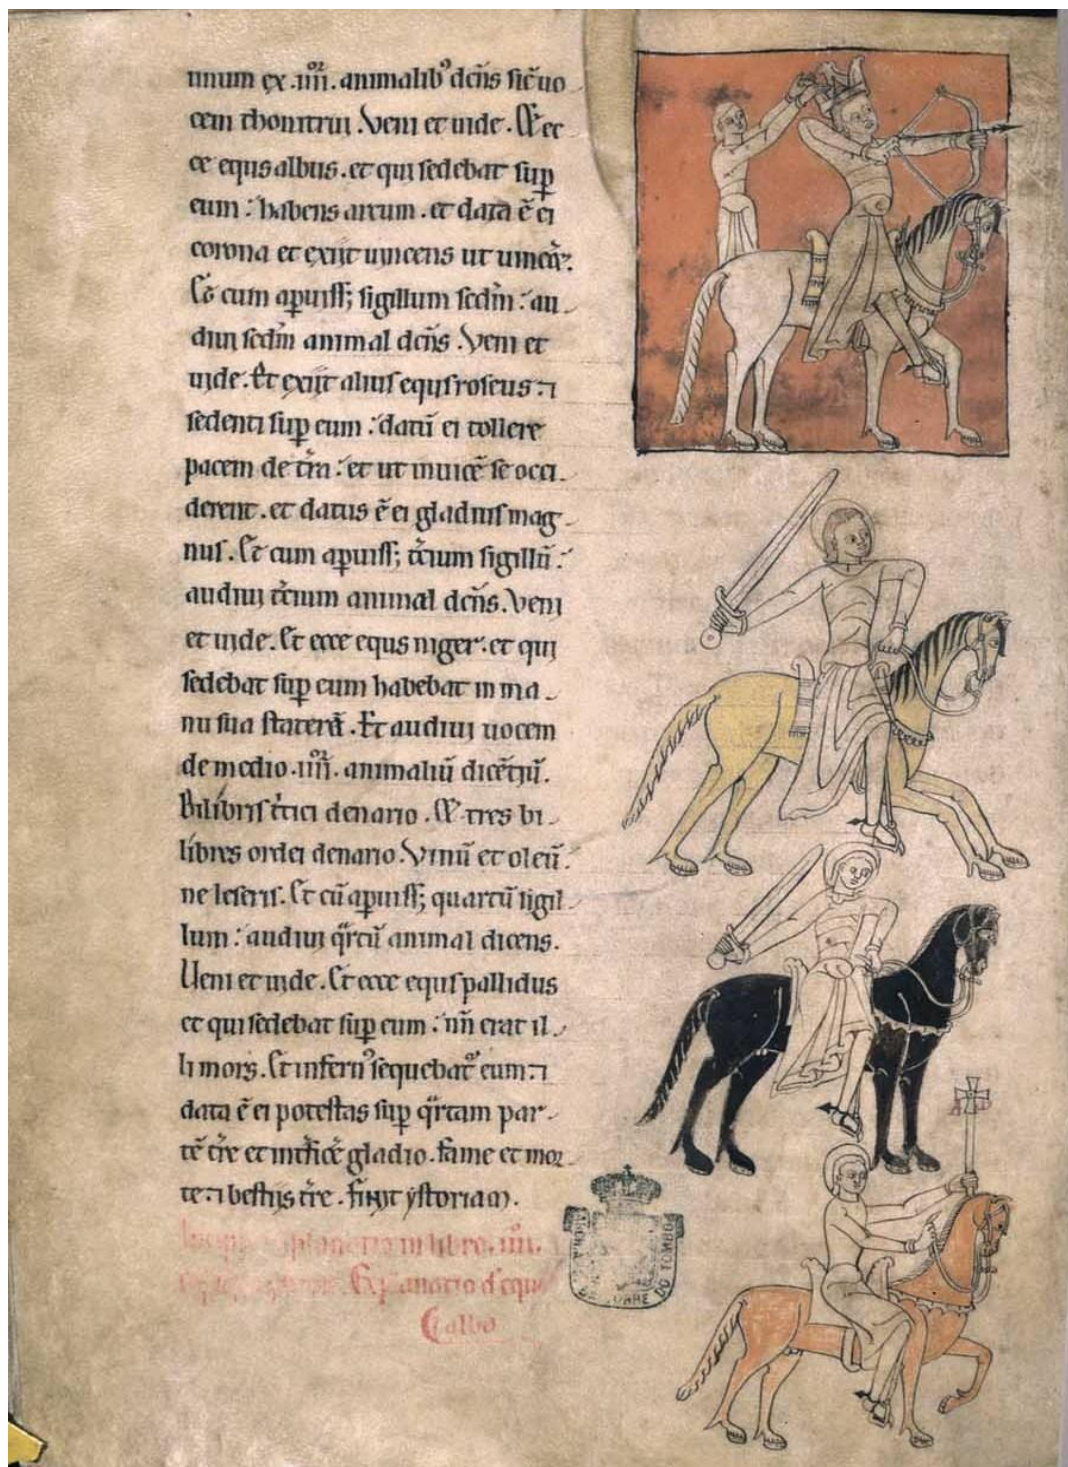 unum ex .iiii. animalib' dc̄ns sic̄ uo
cem thonitrui. Veni et uide. Et ec
ce equs albus. et qui sedebat sup̄
eum: habens arcum. et data ē ei
corona et exijt uincens ut uincer̄.
Et cum aꝑuiss; sigillum sedm̄: au
diui sedm̄ animal dc̄ns. Veni et
uide. Et exijt alius equs roseus: ⁊
sedenti sup̄ eum: datū ei tollere
pacem de tr̄a: et ut inuicē se occi
derent. et datus ē ei gladius mag
nus. Et cum aꝑuiss; tc̄ium sigillū:
audiui tc̄ium animal dc̄ns. Veni
et uide. Et ecce equs niger: et qui
sedebat sup̄ eum habebat in ma
nu sua staterā. Et audiui uocem
de medio .iiii. animaliū dicētiū.
Bilibris tͥtici denario. Et tres bi
libres ordei denario. Vinū et oleū:
ne leseris. Et cū aꝑuiss; quartū sigil
lum: audiui qᷓrtū animal dicens.
Ueni et uide. Et ecce equs pallidus
et qui sedebat sup̄ eum: nm̄ erat il
li mors. Et infern' sequebat᷑ eum: ⁊
data ē ei potestas sup̄ qᷓrtam par
tē tr̄e et int̄ficēr gladio. fame et mor
te: ⁊ bestijs tr̄e. finit ystoriam.
in libro. iiii.
d'equo
albo
TOMBO